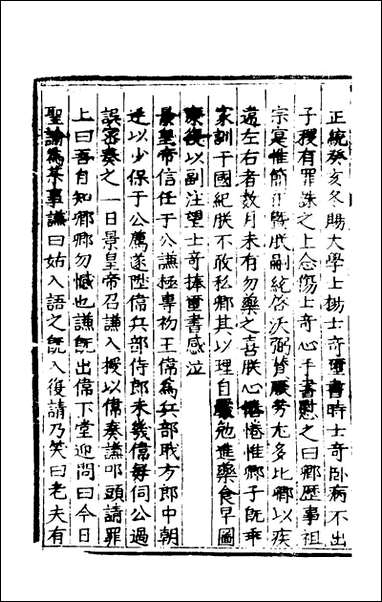 正統癸亥冬賜大學士楊士奇璽書時士奇卧病不出
子稷有罪誅之上念傷士奇心手書慰之曰卿歷事祖
宗寔惟簡正暨朕嗣統啓沃弼贊勞尤多比卿以疾
違左右者数月未有勿藥之喜朕心惓惓惟卿子旣乖
家訓干國紀朕不敢私卿其以理自勉進藥食早圖
康復以副注望士奇捧璽書感泣
景皇帝信任于公謙極專初王偉爲兵部職方郎中朝
廷以少保于公薦遂陞偉兵部侍郎未幾偉每伺公過
誤密奏之一日景皇帝召謙入授以偉奏謙叩頭請罪
上曰吾自知卿卿勿憾也謙旣出偉下堂迎問曰今日
聖諭爲某事謙曰姑入語之旣入復請乃笑曰老夫有